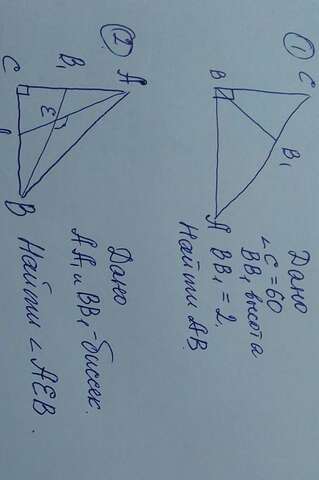 ① C
B
B₁
A
Дано
∠C = 60
BB₁ высота
BB₁ = 2.
Найти AB
② A
B₁
C
E
B
Дано
AA₁ и BB₁ - биссек.
Найти ∠AEB.